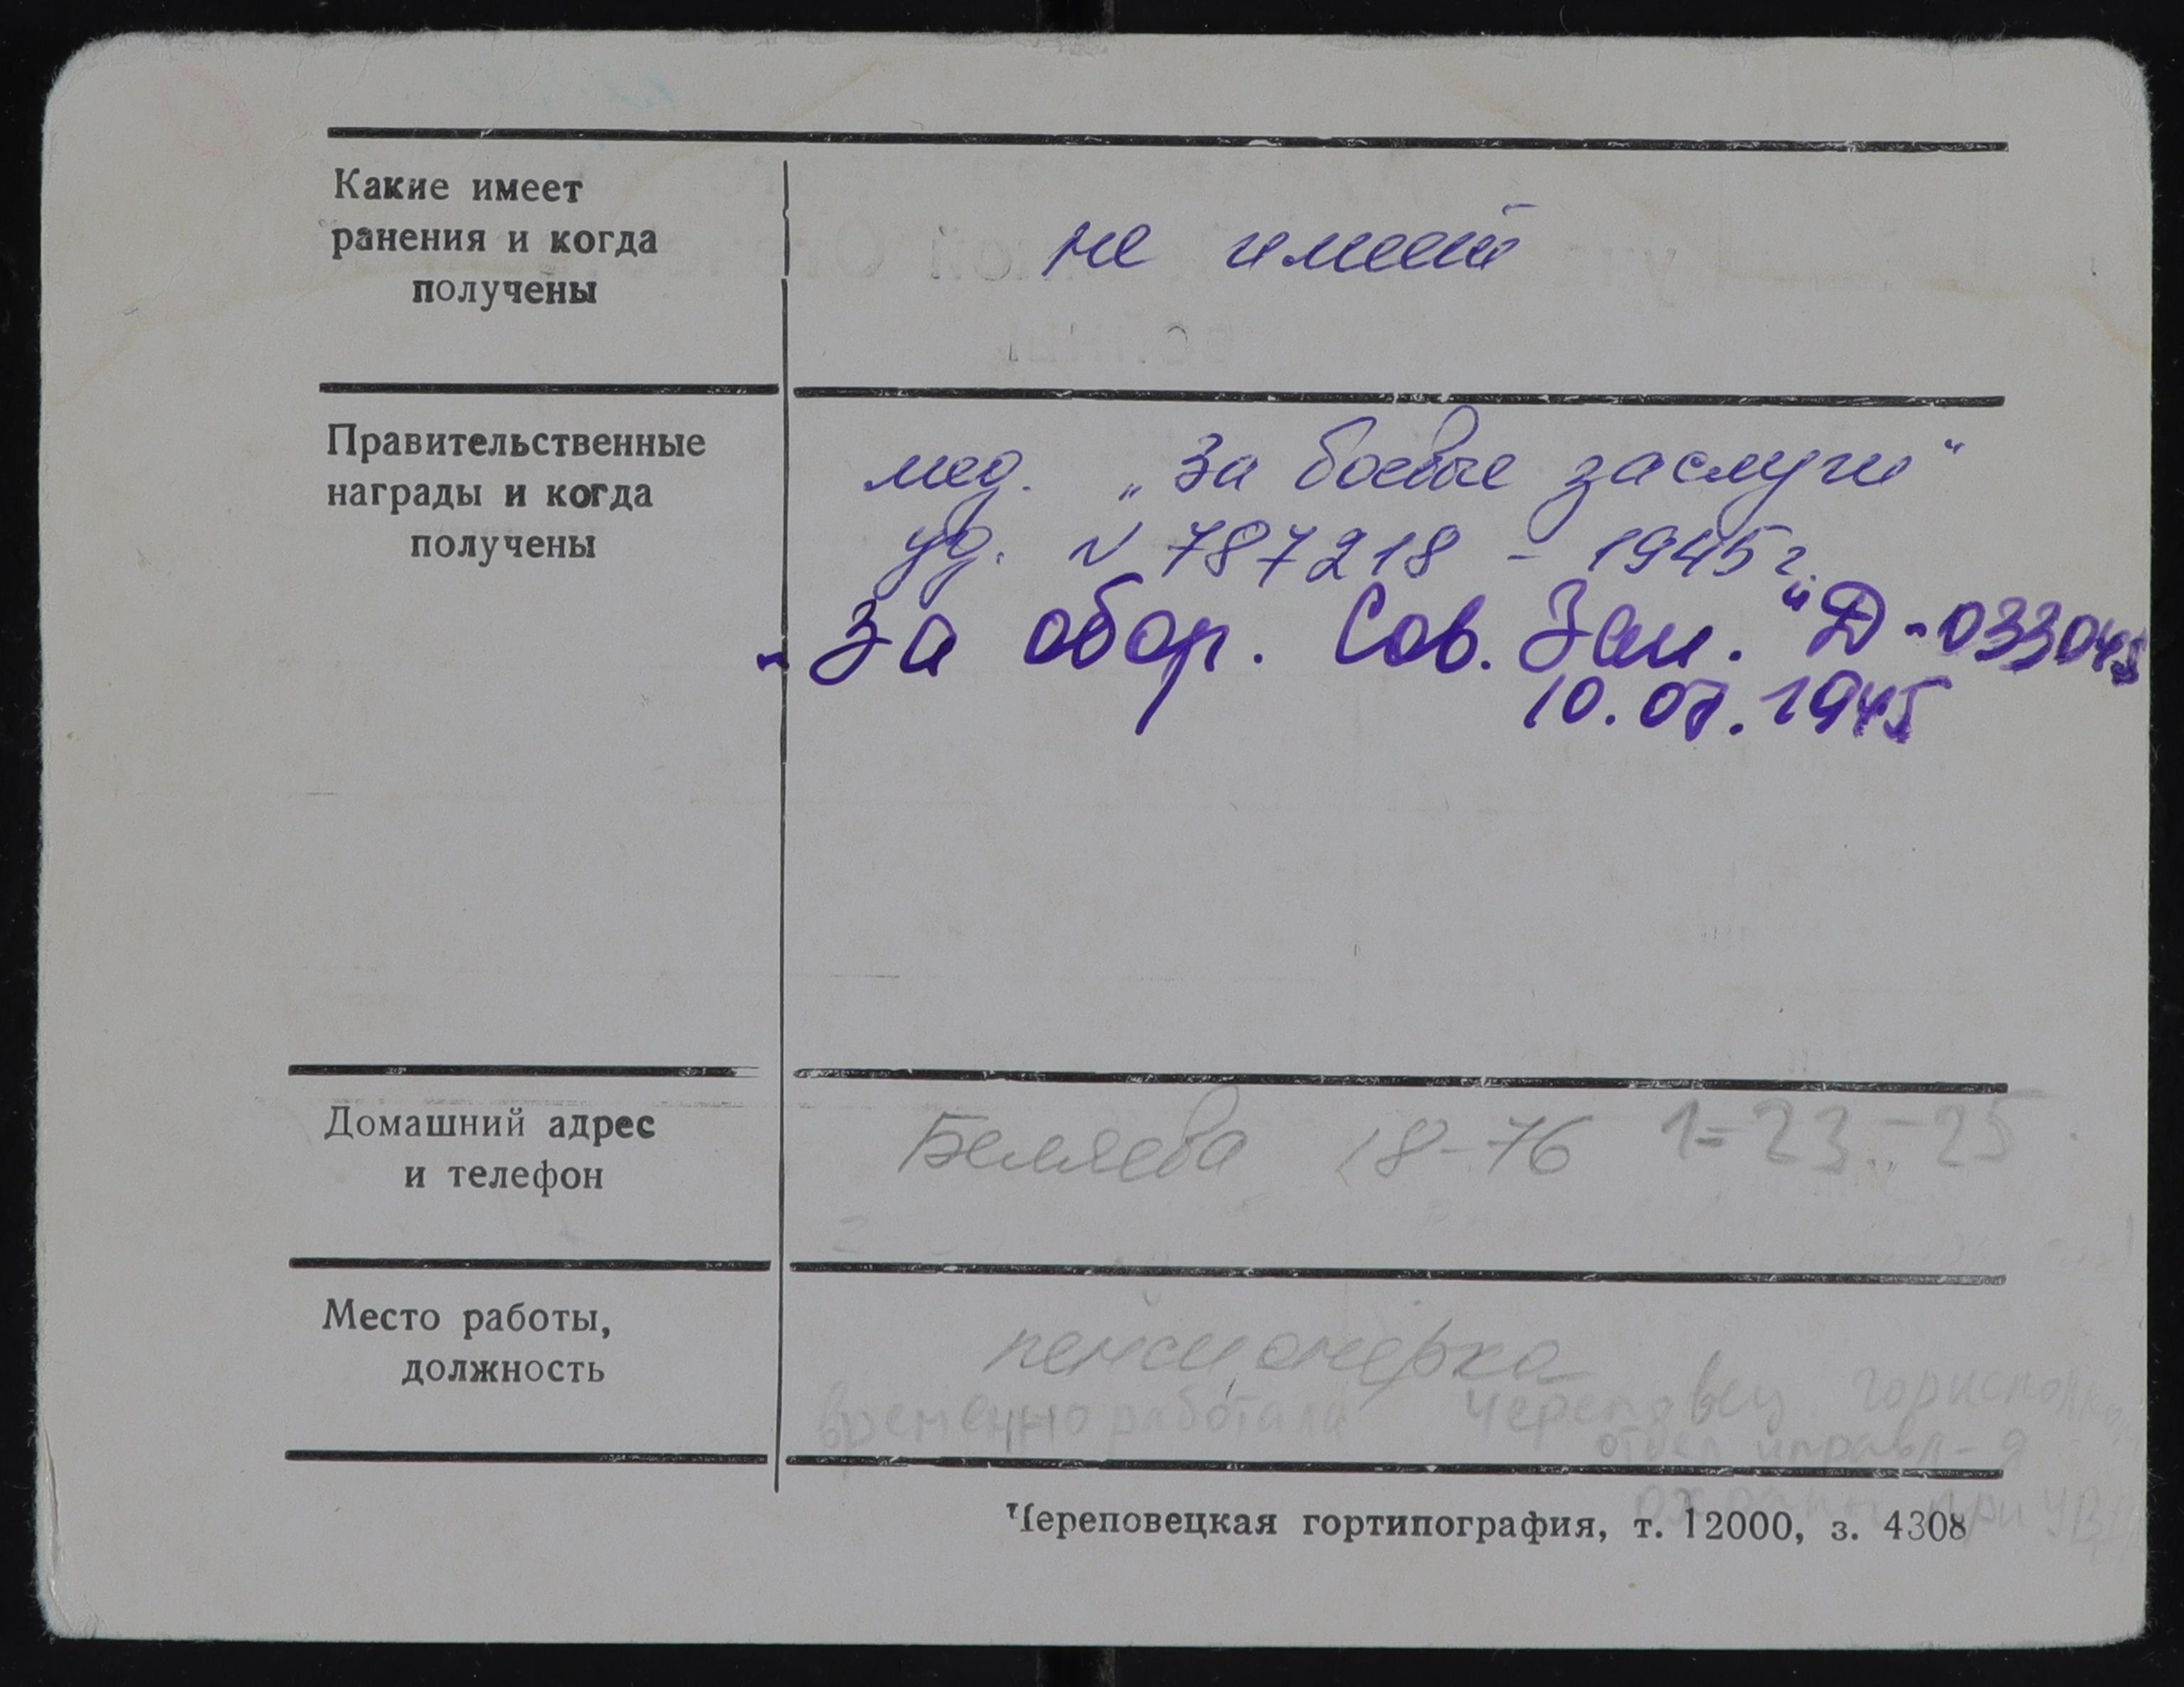 Какие имеет
ранения и когда
получены
не имеет
Правительственные
награды и когда
получены
мед. „За боевые заслуги"
уд. N 787218 - 1945 г.
„За обор. Сов. Зап." Д-033045
10.07.1945
Домашний адрес
и телефон
Беляева 18-76 1-23-25
Место работы,
должность
пенсионерка
временно работала Череповец горисполком
отдел управл-я
охраны при УВД
Череповецкая гортипография, т. 12000, з. 4308